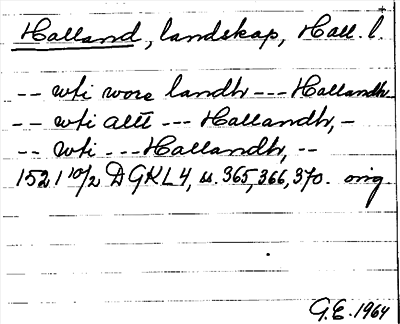 Halland, landskap, Hall. l.
-- wti wore landh --- Hallandh
-- wti alltt --- Hallandh, -
-- wti --- Hallandh, --
1521 10/2 DGKL 4, s. 365, 366, 370. orig.
G.E. 1964